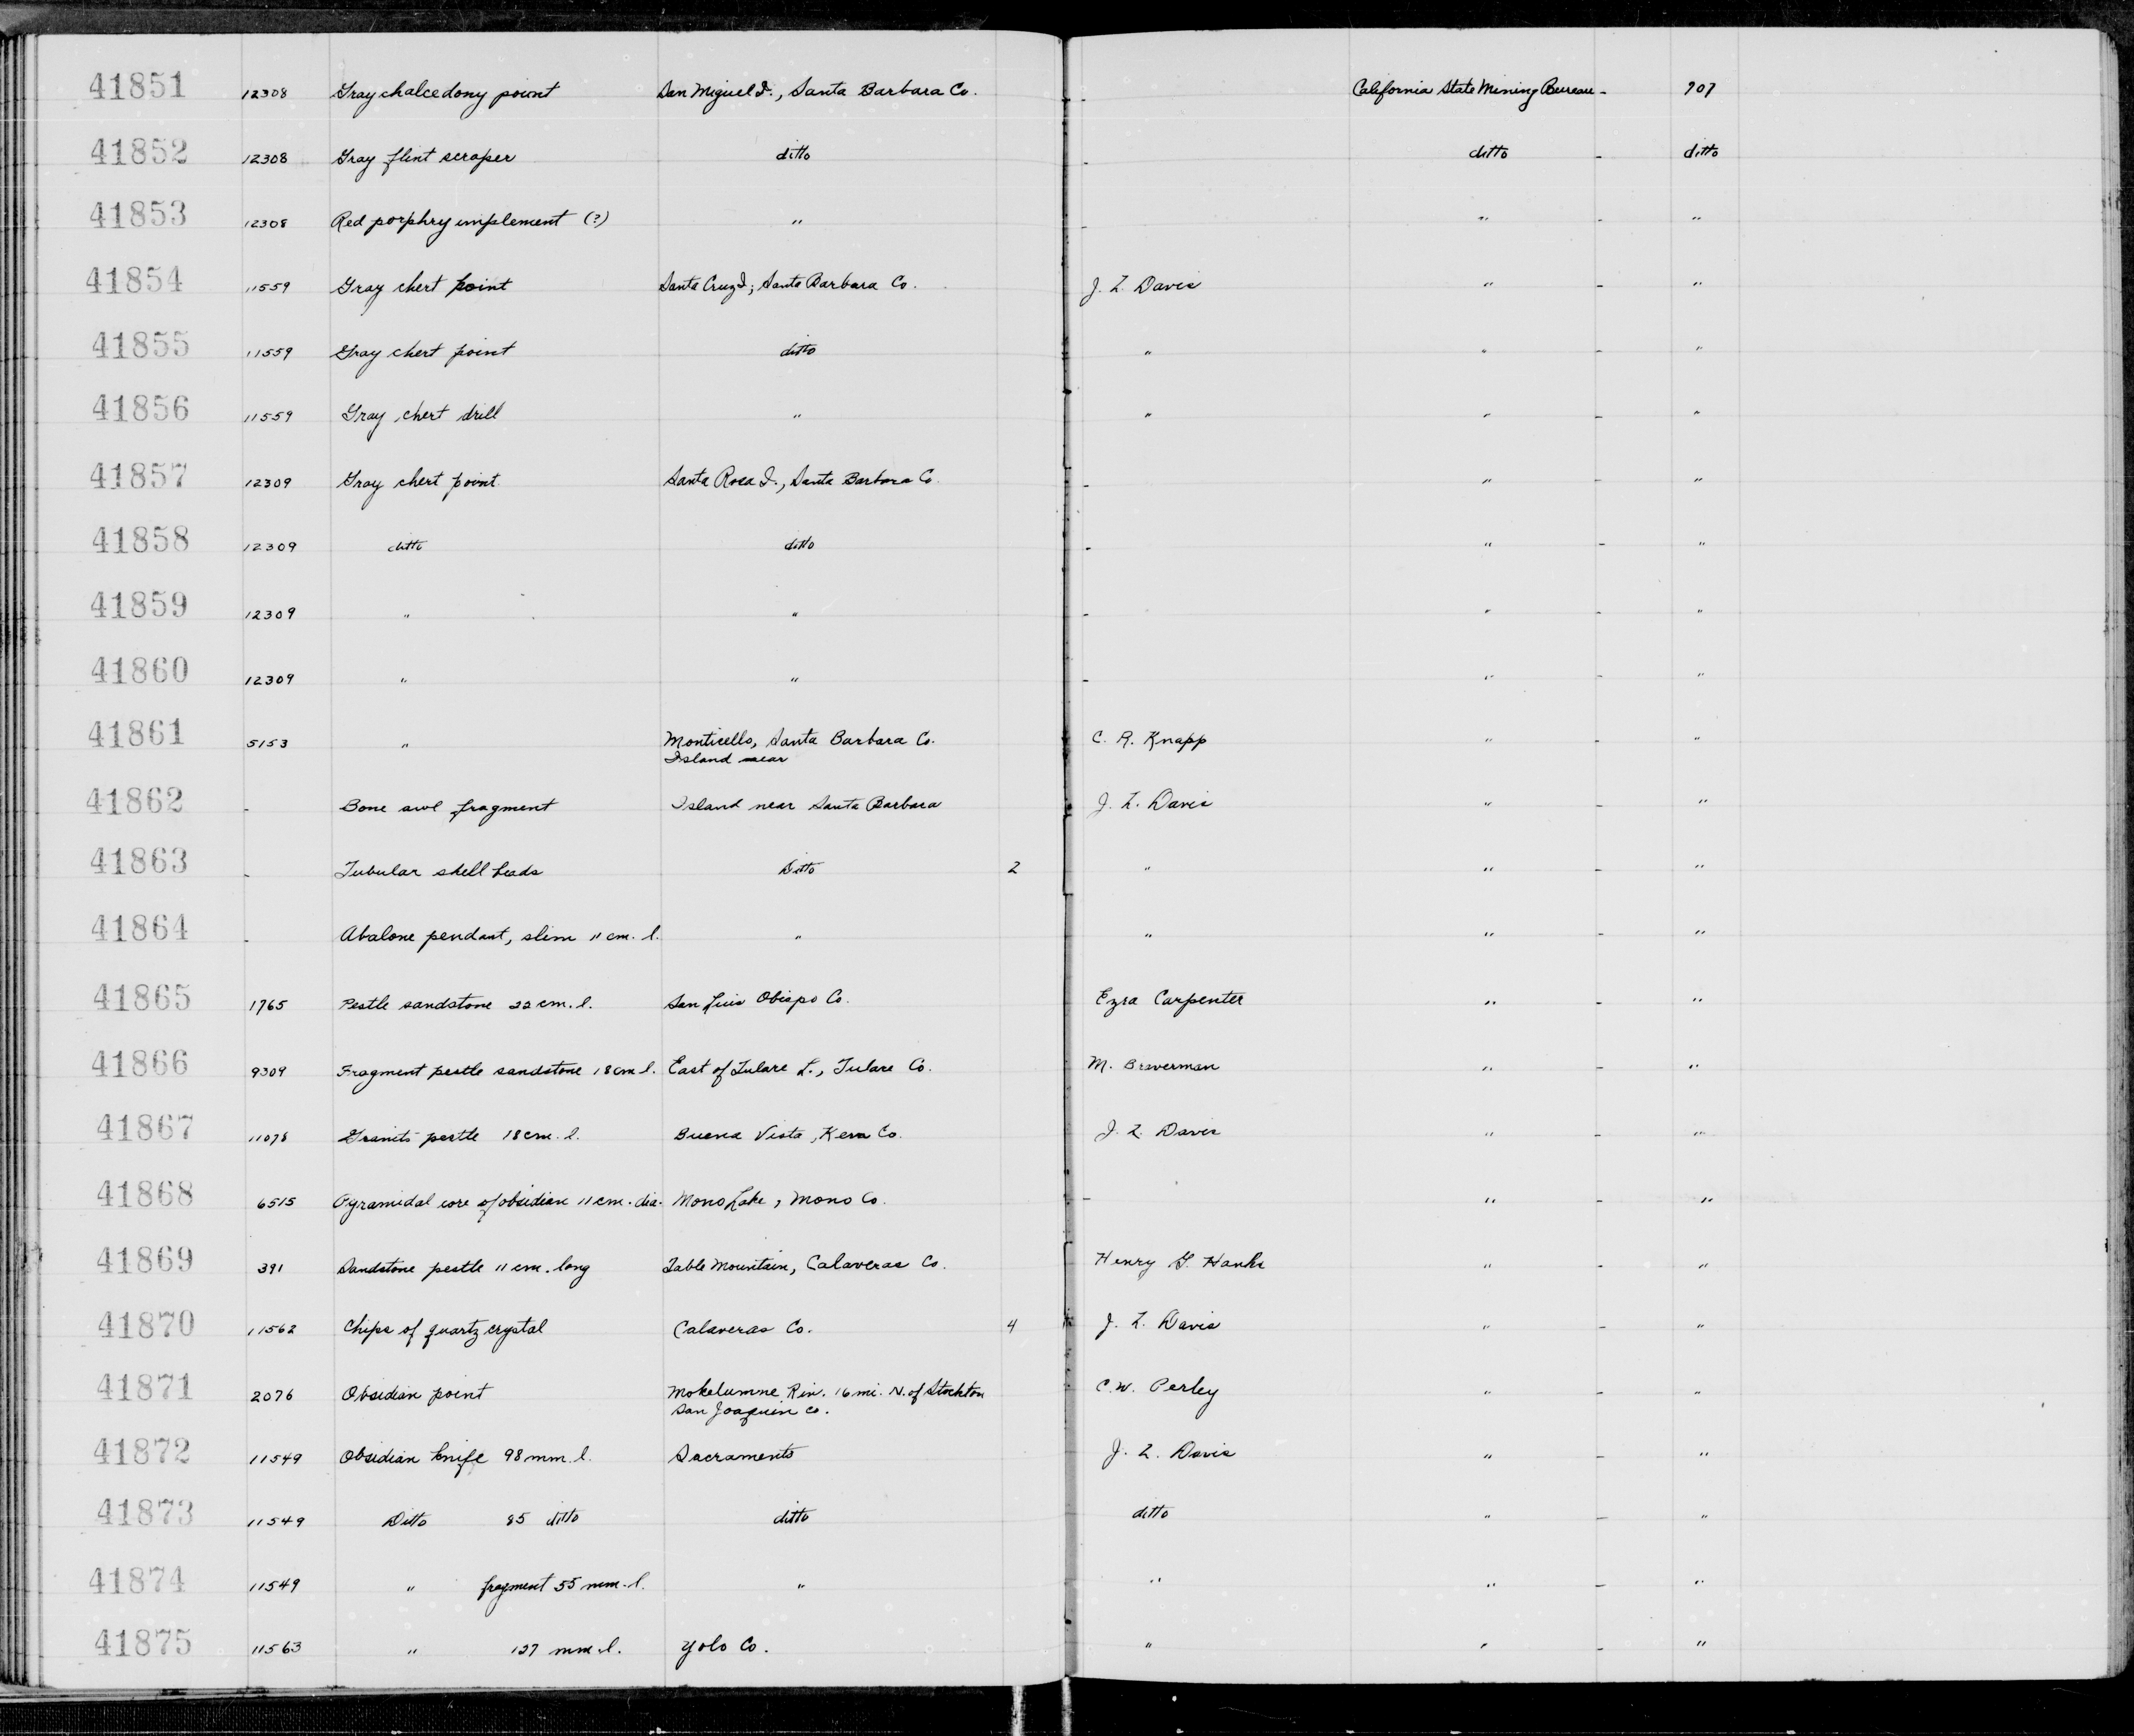 41851 12308 Gray chalcedony point San Miguel I., Santa Barbara Co. - California State Mining Bureau - 707
41852 12308 Gray flint scraper ditto - ditto - ditto
41853 12308 Red porphry implement (?) " - " - "
41854 11559 Gray chert point Santa Cruz I., Santa Barbara Co. J. Z. Davis " - "
41855 11559 Gray chert point ditto " " - "
41856 11559 Gray chert drill " " " - "
41857 12309 Gray chert point Santa Rosa I., Santa Barbara Co. - " - "
41858 12309 ditto ditto - " - "
41859 12309 " " - " - "
41860 12309 " " - " - "
41861 5153 " Monticello, Santa Barbara Co. C. R. Knapp " - "
Island near
41862 - Bone awl fragment Island near Santa Barbara J. Z. Davis " - "
41863 - Tubular shell beads Ditto 2 " " - "
41864 - Abalone pendant, slim 11 cm. l. " " " - "
41865 1765 Pestle sandstone 22 cm. l. San Luis Obispo Co. Ezra Carpenter " - "
41866 9309 Fragment pestle sandstone 18 cm l. East of Tulare L., Tulare Co. M. Braverman " - "
41867 11078 Granite pestle 18 cm. l. Buena Vista, Kern Co. J. Z. Davis " - "
41868 6515 Pyramidal core of obsidian 11 cm. dia. Mono Lake, Mono Co. - " - "
41869 391 Sandstone pestle 11 cm. long Table Mountain, Calaveras Co. Henry G. Hanks " - "
41870 11562 Chips of quartz crystal Calaveras Co. 4 J. Z. Davis " - "
41871 2076 Obsidian point Mokelumne Riv. 16 mi. N. of Stockton C. W. Perley " - "
San Joaquin Co.
41872 11549 Obsidian knife 98 mm. l. Sacramento J. Z. Davis " - "
41873 11549 Ditto 85 ditto ditto ditto " - "
41874 11549 " fragment 55 mm. l. " " " - "
41875 11563 " 127 mm. l. Yolo Co. " " - "